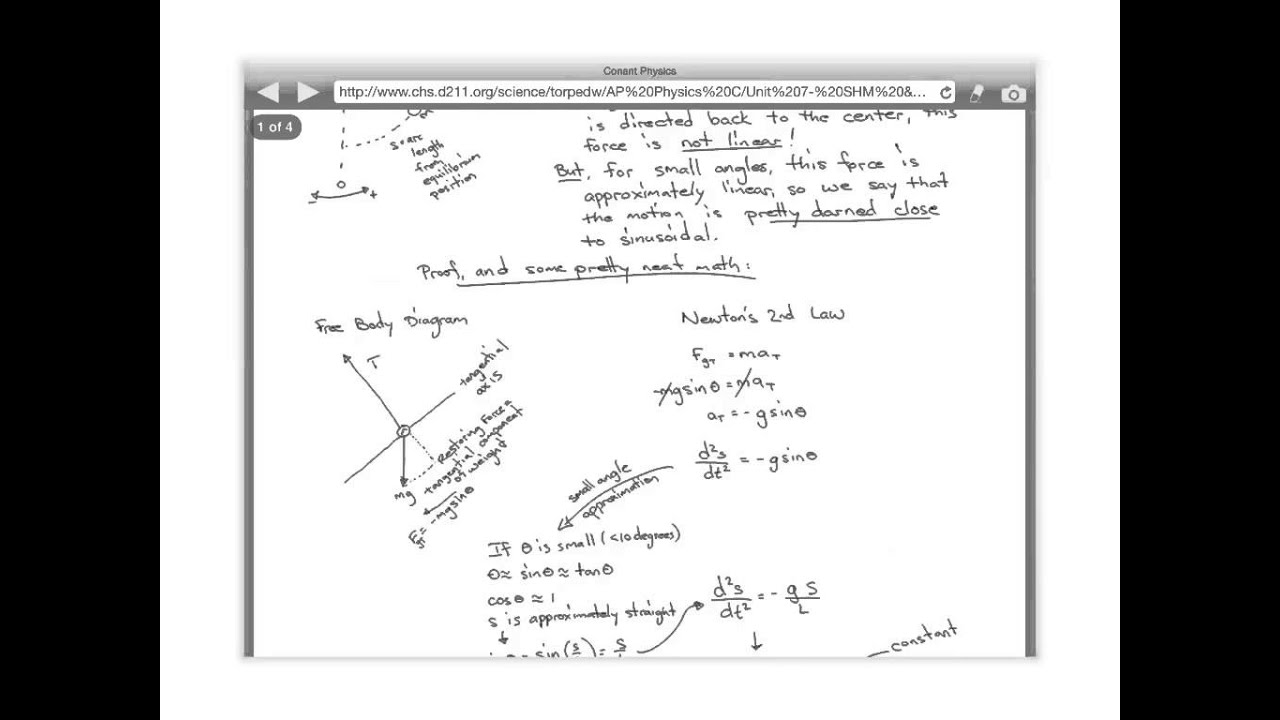 Conant Physics
http://www.chs.d211.org/science/torpedw/AP%20Physics%20C/Unit%207-%20SHM%20&...
1 of 4
s=arc
length
from
equilibrium
position
0
- +
is directed back to the center, this
force is not linear!
But, for small angles, this force is
approximately linear, so we say that
the motion is pretty darned close
to sinusoidal.
Proof, and some pretty neat math:
Free Body Diagram
T
tangential
axis
Restoring Force =
tangential component
of weight
mg
-mgsinθ
Newton's 2nd Law
F_gT = ma_T
-mgsinθ = ma_T
a_T = -gsinθ
d²s/dt² = -gsinθ
small angle
approximation
If θ is small (<10degrees)
θ ≈ sinθ ≈ tanθ
cosθ ≈ 1
s is approximately straight
sin(s/ )= s/
d²s/dt² = - gs/L
constant